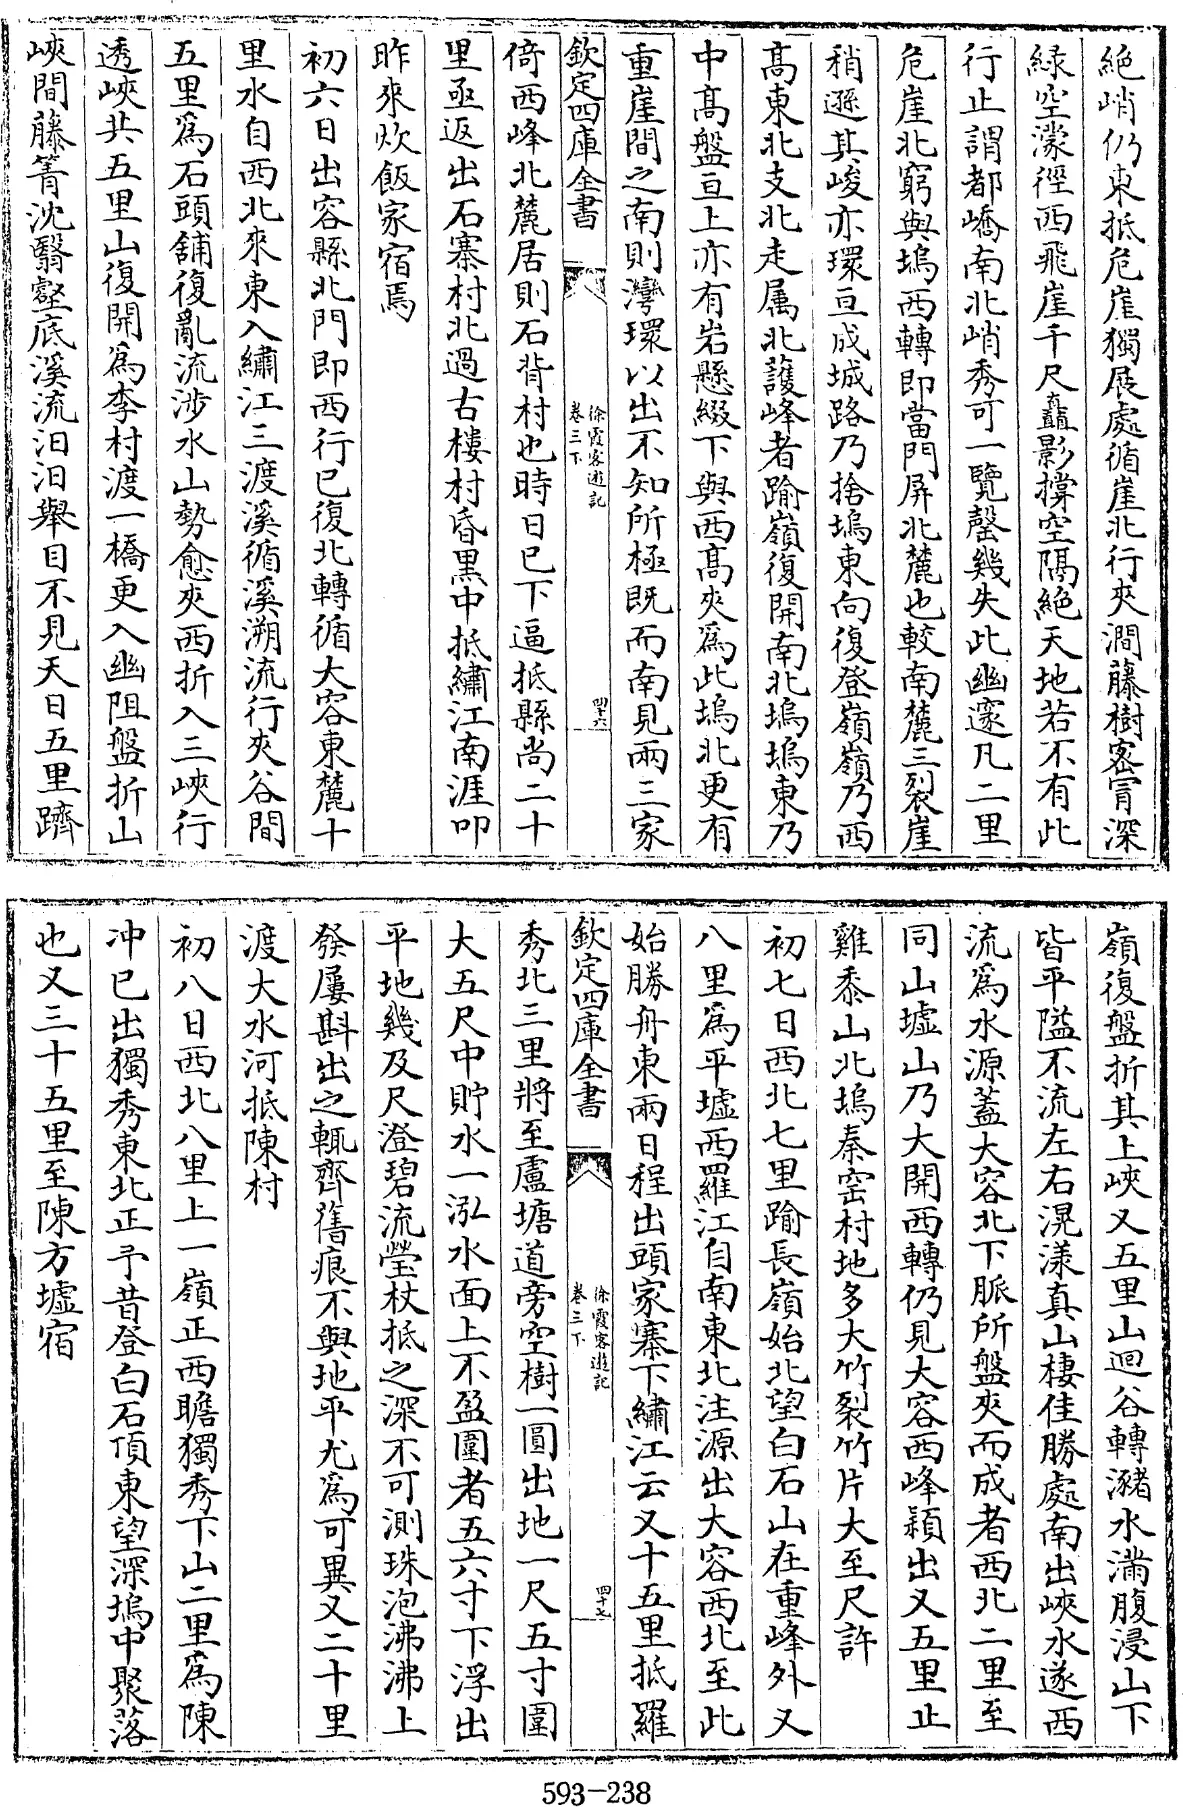 絶峭仍東抵危崖獨展處循崖北行夾澗藤樹密罥深
緑空濛徑西飛崖千尺矗影撐空隔絶天地若不有此
行止謂都嶠南北峭秀可一覽罄幾失此幽邃凡二里
危崖北窮與塢西轉即當門屏北麓也較南麓三裂崖
稍遜其峻亦環亘成城路乃捨塢東向復登嶺嶺乃西
髙東北支北走属北護峰者踰嶺復開南北塢塢東乃
中髙盤亘上亦有岩懸綴下與西髙夾爲此塢北更有
重崖間之南則灣環以出不知所極既而南見兩三家
欽定四庫全書
徐霞客遊記
卷三下
四十六
倚西峰北麓居則石背村也時日已下逼抵縣尚二十
里亟返出石寨村北過古樓村昏黒中抵繡江南涯叩
昨來炊飯家宿焉
初六日出容縣北門即西行已復北轉循大容東麓十
里水自西北來東入繡江三渡溪循溪溯流行夾谷間
五里爲石頭舖復亂流涉水山勢愈夾西折入三峽行
透峽共五里山復開爲李村渡一橋更入幽阻盤折山
峽間藤箐沈翳壑底溪流汨汨舉目不見天日五里躋
嶺復盤折其上峽又五里山迴谷轉瀦水滿腹浸山下
皆平隘不流左右滉漾真山棲佳勝處南出峽水遂西
流爲水源蓋大容北下脈所盤夾而成者西北二里至
同山墟山乃大開西轉仍見大容西峰穎出又五里止
雞黍山北塢秦窑村地多大竹裂竹片大至尺許
初七日西北七里踰長嶺始北望白石山在重峰外又
八里爲平墟西羅江自南東北注源出大容西北至此
始勝舟東兩日程出頭家寨下繡江云又十五里抵羅
欽定四庫全書
徐霞客遊記
卷三下
四十七
秀北三里將至盧塘道旁空樹一圓出地一尺五寸圍
大五尺中貯水一泓水面上不盈圍者五六寸下浮出
平地幾及尺澄碧流瑩杖抵之深不可測珠泡沸沸上
發屢斟出之輒齊舊痕不與地平尤爲可異又二十里
渡大水河抵陳村
初八日西北八里上一嶺正西瞻獨秀下山二里爲陳
冲已出獨秀東北正予昔登白石頂東望深塢中聚落
也又三十五里至陳方墟宿
593-238